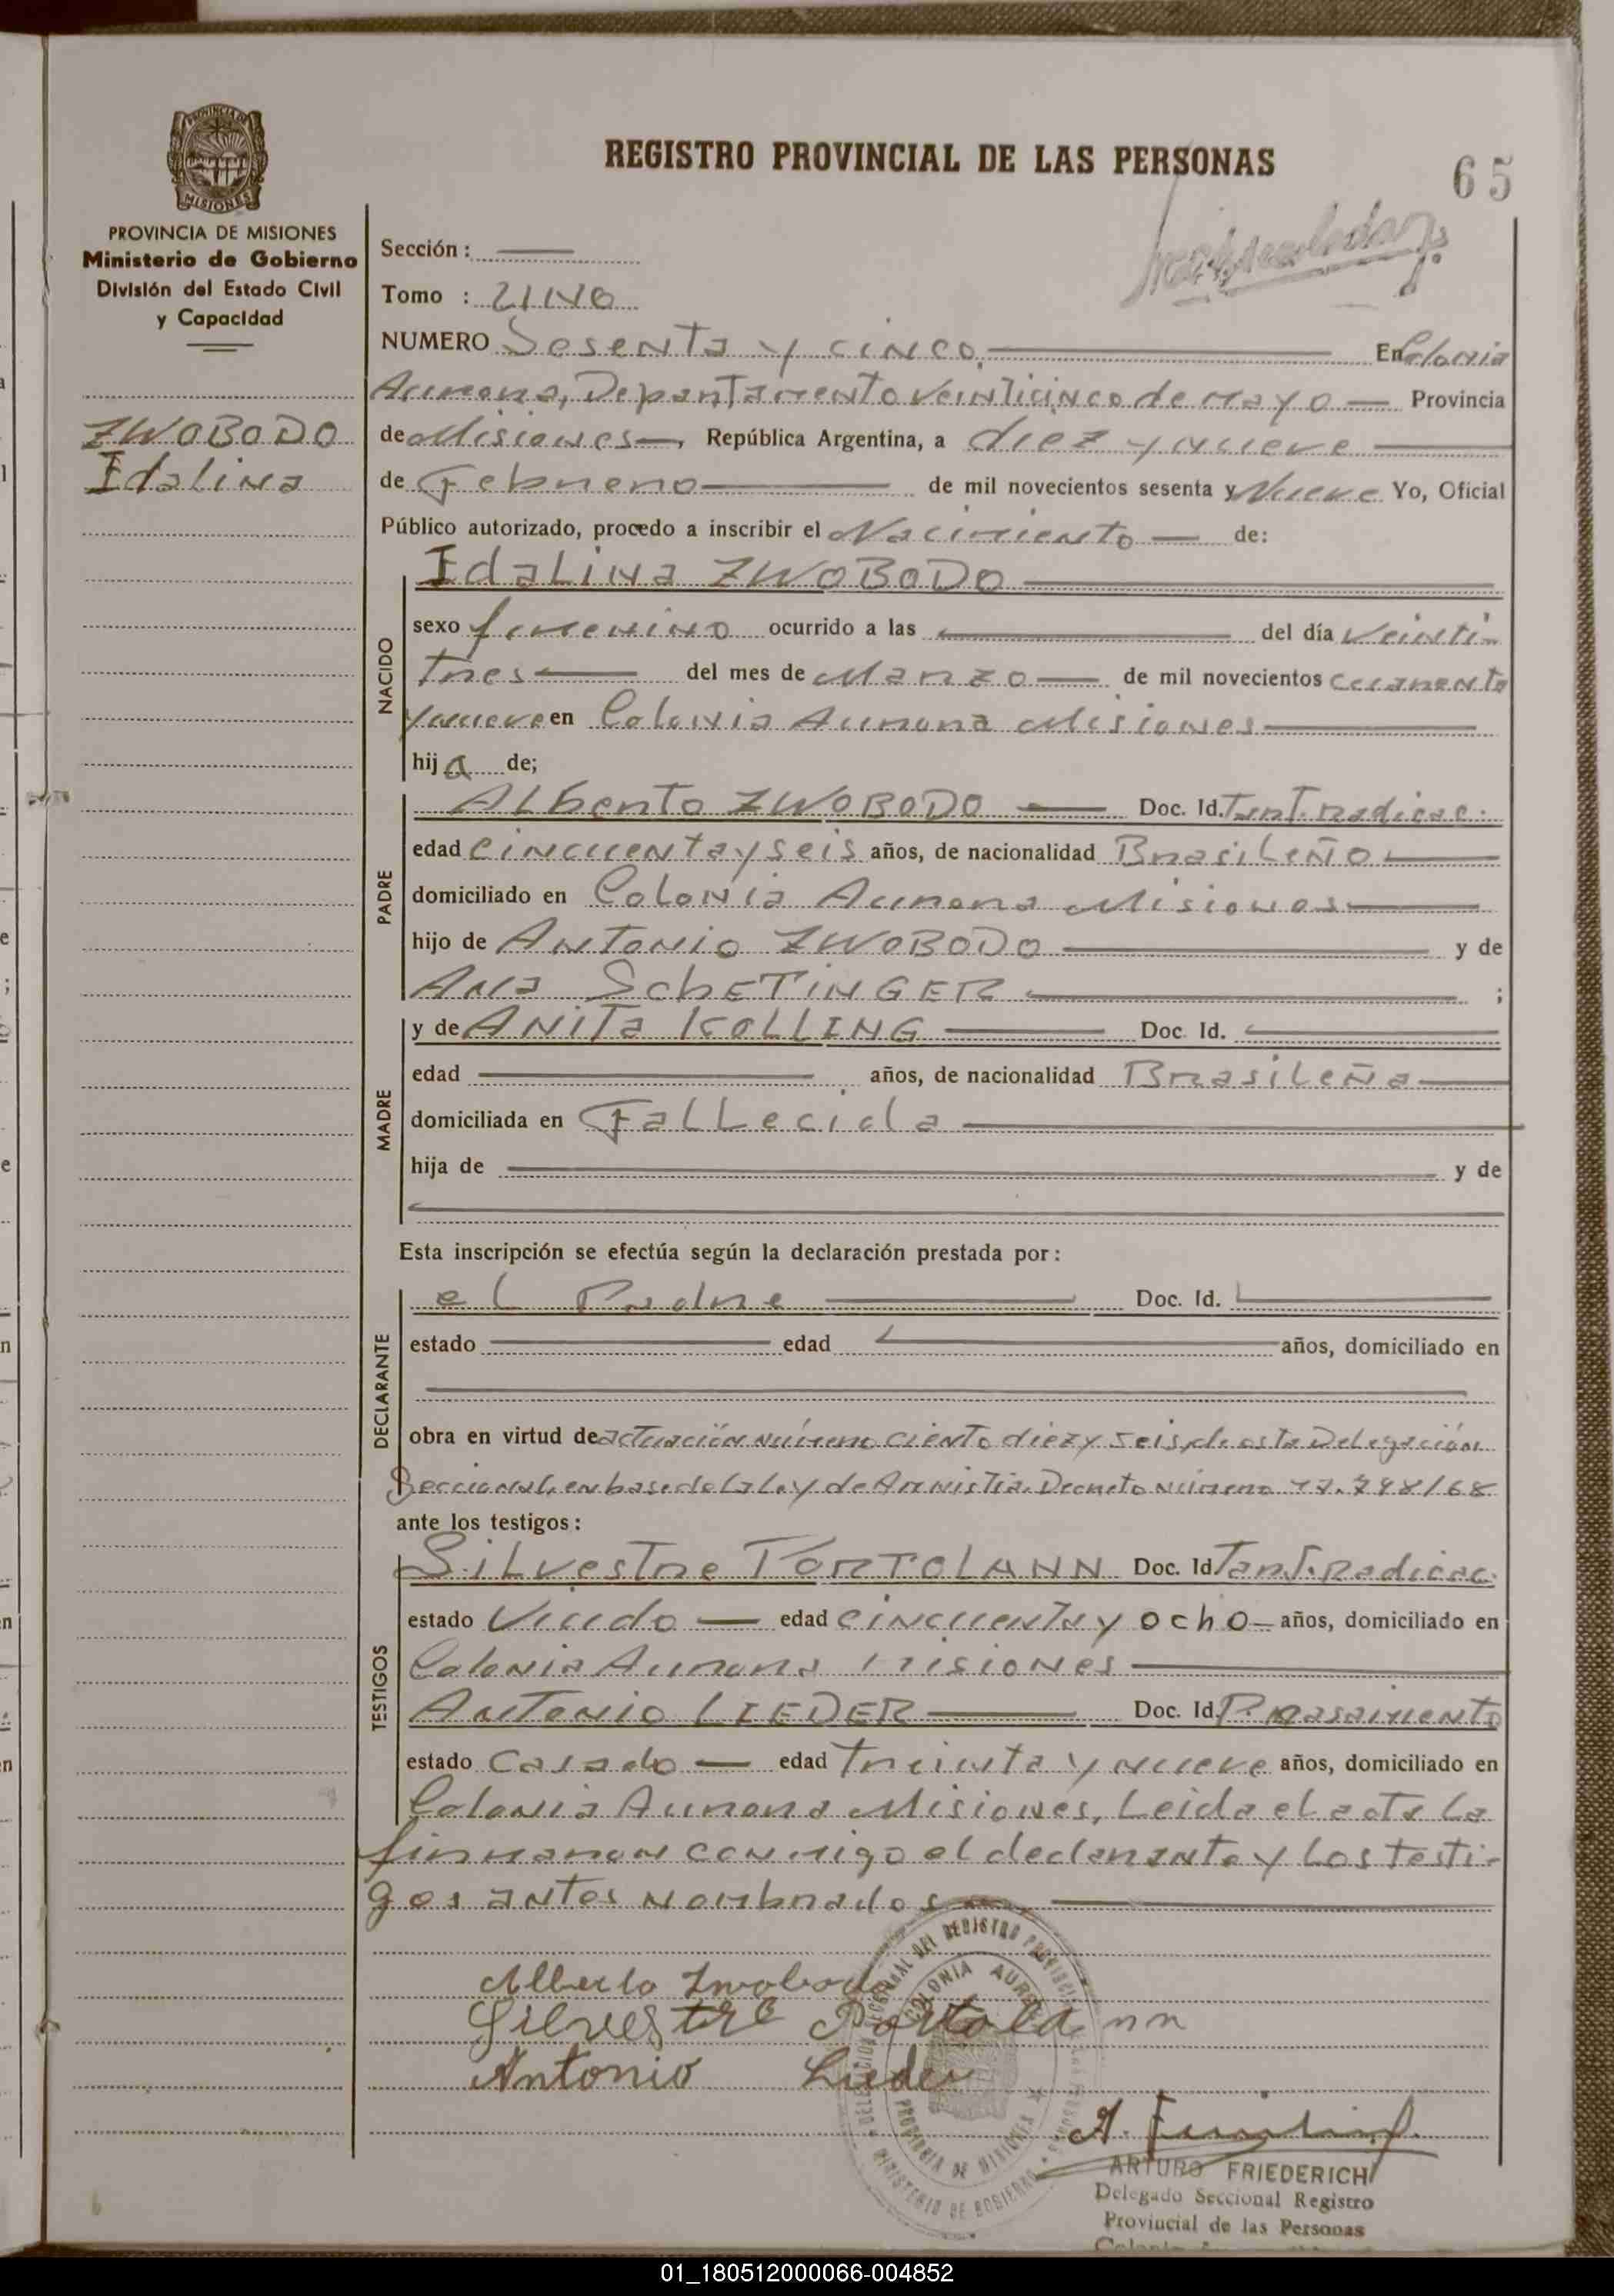 REGISTRO PROVINCIAL DE LAS PERSONAS
65
PROVINCIA DE MISIONES
MISIONES
PROVINCIA DE MISIONES
Ministerio de Gobierno
División del Estado Civil
y Capacidad
ZWOBODO
Idalina
Sección :
Tomo : UNO
NUMERO Sesenta y cinco En Colonia
Aurora, Departamento Veinticinco de Mayo Provincia
de Misiones, República Argentina, a diez y nueve
de Febrero de mil novecientos sesenta y Nueve Yo, Oficial
Público autorizado, procedo a inscribir el Nacimiento de:
Idalina ZWOBODO
NACIDO
sexo femenino ocurrido a las del día veinti-
tres del mes de Marzo de mil novecientos cuarenta
y nueve en Colonia Aurora Misiones
hija de;
PADRE
Alberto ZWOBODO Doc. Id. Tant. Radicac.
edad cincuenta y seis años, de nacionalidad Brasileño
domiciliado en Colonia Aurora Misiones
hijo de Antonio ZWOBODO y de
Ana SchETINGER ;
MADRE
y de ANITA KOLLING Doc. Id.
edad años, de nacionalidad Brasileña
domiciliada en Fallecida
hija de y de
Esta inscripción se efectúa según la declaración prestada por :
DECLARANTE
el Padre Doc. Id.
estado edad años, domiciliado en
obra en virtud de actuación número ciento diez y seis, de esta Delegación
Seccional, en base de la Ley de Amnistia. Decreto número 17.798/68
ante los testigos :
TESTIGOS
Silvestre PORTOLANN Doc. Id Tant. Radicac.
estado Viudo edad cincuenta y ocho años, domiciliado en
Colonia Aurora Misiones
Antonio LIEDER Doc. Id.
estado Casado edad treinta y nueve años, domiciliado en
Colonia Aurora Misiones, Leida el acta la
firmaron conmigo el declarante y los testi-
gos antes nombrados
Alberto Zwobodo
Silvestre Portolann
Antonio Lieder
DELEGACION SECCIONAL DEL REGISTRO PROVINCIAL DE LAS PERSONAS
COLONIA AURORA
PROVINCIA DE MISIONES
MINISTERIO DE GOBIERNO
ARTURO FRIEDERICH
Delegado Seccional Registro
Provincial de las Personas
01_180512000066-004852